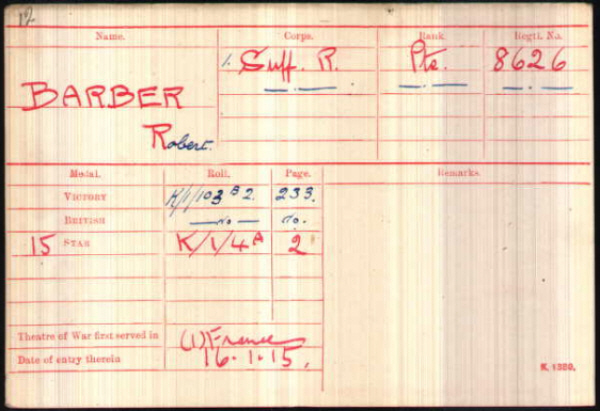 12
Name.
Corps.
Rank.
Regtl. No.
1. Suff. R.
Pte.
8626
BARBER
Robert.
Medal.
Roll.
Page.
Remarks.
VICTORY
K/1/103 B2.
233.
BRITISH
do
do.
15 STAR
K/1/4A
2
Theatre of War first served in
(1) France
Date of entry therein
16.1.15.
K. 1380.